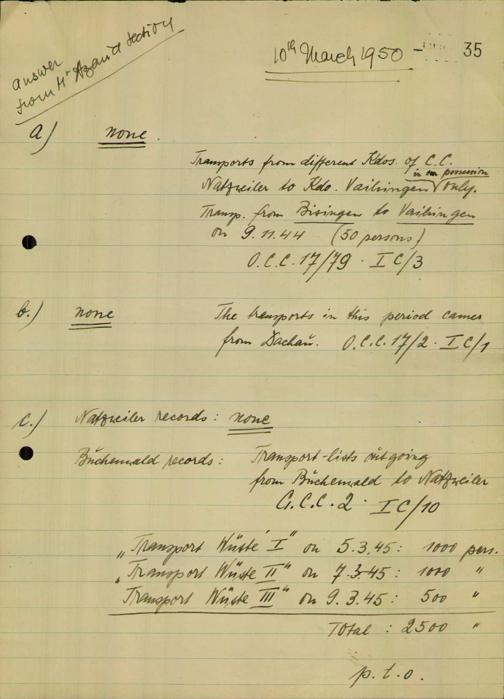 answer
from Hr Azand section
10th March 1950 - 35
a) none.
Transports from different Kdos. of C.C.
in our possession
Natzweiler to Kdo. Vaihingen only.
Transp. from Bisingen to Vaihingen
on 9.11.44 (50 persons)
O.C.C. 17/79 · IC/3
b.) none The transports in this period came
from Dachau. O.C.C. 17/2 · IC/1
c.) Natzweiler records: none
Büchenwald records: Transport-lists outgoing
from Büchenwald to Natzweiler
G.C.C. 2 · IC/10
„Transport Wüste I" on 5.3.45: 1000 pers.
„Transport Wüste II" on 7.3.45: 1000 "
Transport Wüste III" on 9.3.45: 500 "
Total: 2500 "
p.t.o.